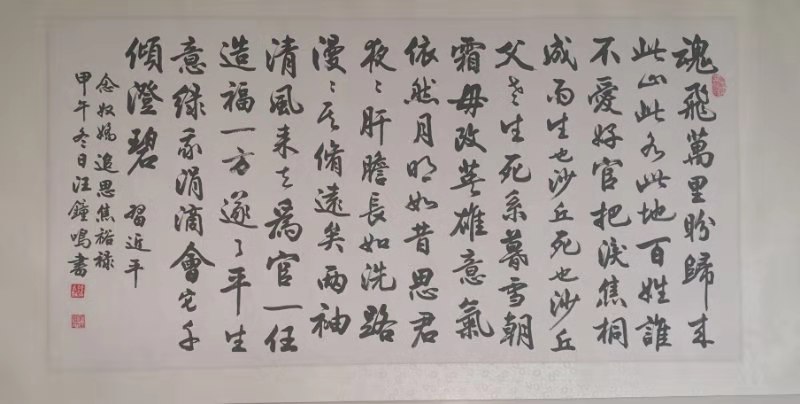 魂飛萬里盼歸來
此山此水此地百姓誰
不愛好官把淚焦桐
成雨生也沙丘死也沙丘
父老生死系暮雪朝
霜毋改英雄意氣
依然月明如昔思君
夜〻肝膽長如洗路
漫〻其脩遠矣兩袖
清風來去為官一任
造福一方遂了平生
意綠我涓滴會它千
傾澄碧 習近平
念奴嬌追思焦裕祿
甲午冬日汪鐘鳴書